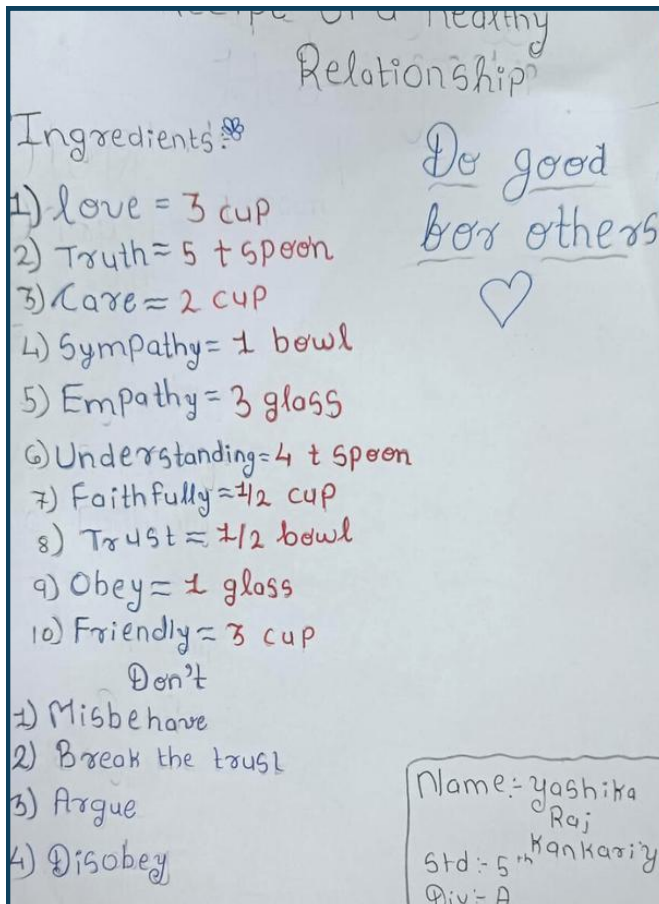 Recipe of a healthy
Relationship
Ingredients:
Do good
for others
1) love = 3 cup
2) Truth = 5 t spoon
3) Care = 2 cup
4) Sympathy = 1 bowl
5) Empathy = 3 glass
6) Understanding = 4 t spoon
7) Faithfully = 1/2 cup
8) Trust = 1/2 bowl
9) Obey = 1 glass
10) Friendly = 3 cup
Don't
1) Misbehave
2) Break the trust
3) Argue
4) Disobey
Name:- Yashika
Raj
Kankariy
Std :- 5th
Div :- A